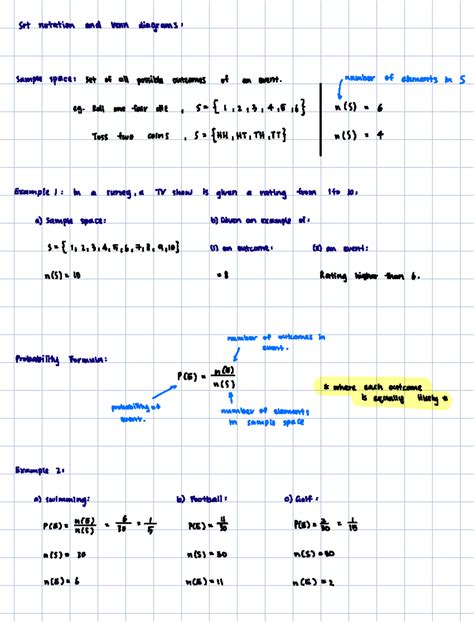 Set notation and venn diagrams:
Sample space: Set of all possible outcomes of an event.
number of elements in S
eg. Roll one fair die , S = { 1, 2, 3, 4, 5, 6 }
n(S) = 6
Toss two coins , S = { HH, HT, TH, TT }
n(S) = 4
Example 1: In a survey, a TV show is given a rating from 1 to 10:
a) Sample space:
b) Given an example of:
S = { 1, 2, 3, 4, 5, 6, 7, 8, 9, 10 }
(i) an outcome:
(ii) an event:
n(S) = 10
= 8
Rating higher than 6.
number of outcomes in
event.
Probability Formula:
P(E) = n(E) / n(S)
* where each outcome
is equally likely *
probability of
event.
number of elements
in sample space
Example 2:
a) Swimming:
b) Football:
c) Golf:
P(E) = n(E) / n(S) = 6/30 = 1/5
P(E) = 11/30
P(E) = 2/30 = 1/15
n(S) = 30
n(S) = 30
n(S) = 30
n(E) = 6
n(E) = 11
n(E) = 2